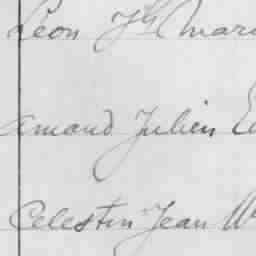 Léon Jh Mari
Amand Julien E
Celestin Jean W